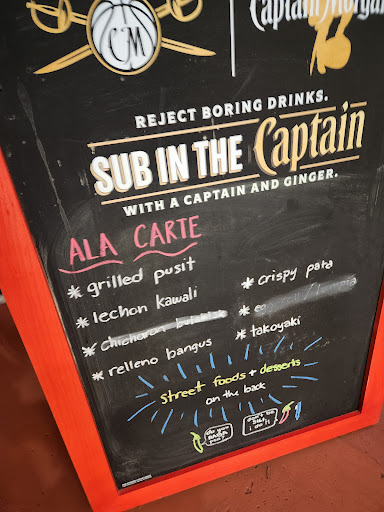 CM
Captain Morgan
REJECT BORING DRINKS.
SUB IN THE Captain
WITH A CAPTAIN AND GINGER.
ALA CARTE
* grilled pusit
* lechon kawali
* chicharon bulaklak
* relleno bangus
* crispy pata
*
* takoyaki
street foods + desserts
on the back